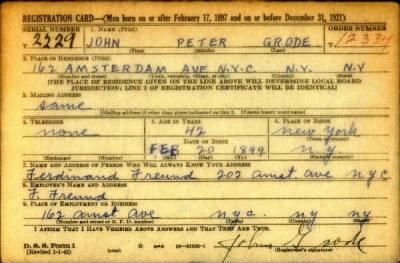 REGISTRATION CARD—(Men born on or after February 17, 1897 and on or before December 31, 1921)
SERIAL NUMBER 1. NAME (Print) ORDER NUMBER
T 2229 JOHN PETER GRODE 12334
(First) (Middle) (Last)
2. PLACE OF RESIDENCE (Print)
162 AMSTERDAM AVE N.Y.C. N.Y. N.Y
(Number and street) (Town, township, village, or city) (County) (State)
[THE PLACE OF RESIDENCE GIVEN ON THE LINE ABOVE WILL DETERMINE LOCAL BOARD
JURISDICTION; LINE 2 OF REGISTRATION CERTIFICATE WILL BE IDENTICAL]
3. MAILING ADDRESS
Same
[Mailing address if other than place indicated on line 2. If same insert word same]
4. TELEPHONE 5. AGE IN YEARS 6. PLACE OF BIRTH
none 42 New York
DATE OF BIRTH (Town or county)
FEB 20 1899 N.Y.
(Exchange) (Number) (Mo.) (Day) (Yr.) (State or country)
7. NAME AND ADDRESS OF PERSON WHO WILL ALWAYS KNOW YOUR ADDRESS
Ferdinand Freund 202 Amst. Ave N.Y.C
8. EMPLOYER'S NAME AND ADDRESS
F. Freund
9. PLACE OF EMPLOYMENT OR BUSINESS
162 Amst Ave N.Y.C. NY NY
(Number and street or R. F. D. number) (Town) (County) (State)
I AFFIRM THAT I HAVE VERIFIED ABOVE ANSWERS AND THAT THEY ARE TRUE.
D. S. S. Form 1 (over) John Grode
(Revised 1-1-42) (Registrant's signature)